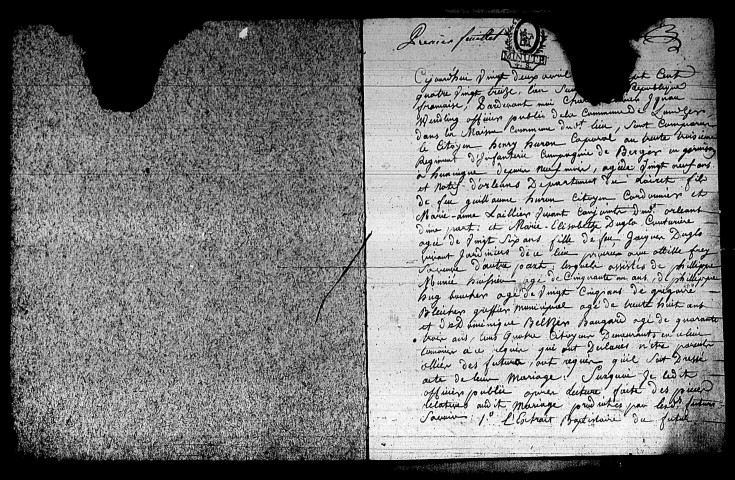 Premier feuillet
MINUTE
Cejourdhuy Vingt deux avril Cent
quatre Vingt treize, l'an République
francaise, Pardevant moi Ignace
Wendling officier public de la Commune de
dans la Maison Commune dud. lieu, sont Comparus
le Citoyen henry huron Caporal au trente troisieme
Regiment d'Infanterie Compagnie de Berger en garnison
a huningue depuis neuf mois, agé de Vingt neuf ans
et natif d'orleans Departement du Loiret fils
de feu guillaume huron Citoyen Cordonnier et
Marie-anne Laillier Vivant Conjoints dud. orleans
d'une part; et Marie-Elisabethe Duglo Couturiere
agée de Vingt Six ans fille de feu Jacques Duglo
vivant Jardinier de ce lieu frey
d'autre part, lesquels assistés de phillippe
agé de Cinquante un ans, de phillippe
hug boucher agé de Vingt Cinq ans de gregoire
Bleicher greffier municipal agé de trente huit ans
et de dominique Beltzer agé de quarante
trois ans, tous quatre Citoyens Demeurants en ce lieu
a ce requis qui ont Declarés n'etre parents
ni allier des futurs, ont requis qu'il soit Dressé
acte de leur Mariage: Surquoi Je ledit
officier public apres Lecture faite des pieces
relatives audit Mariage produites par les futurs
Savoir: 1.° L'Extrait Baptistaire du futur